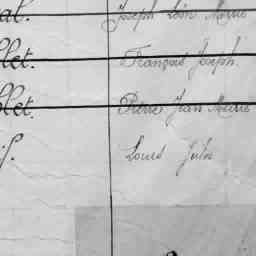 at. Joseph Léon Marie
llet. François Joseph.
llet. Pierre Jean Marie
f. Louis Jules